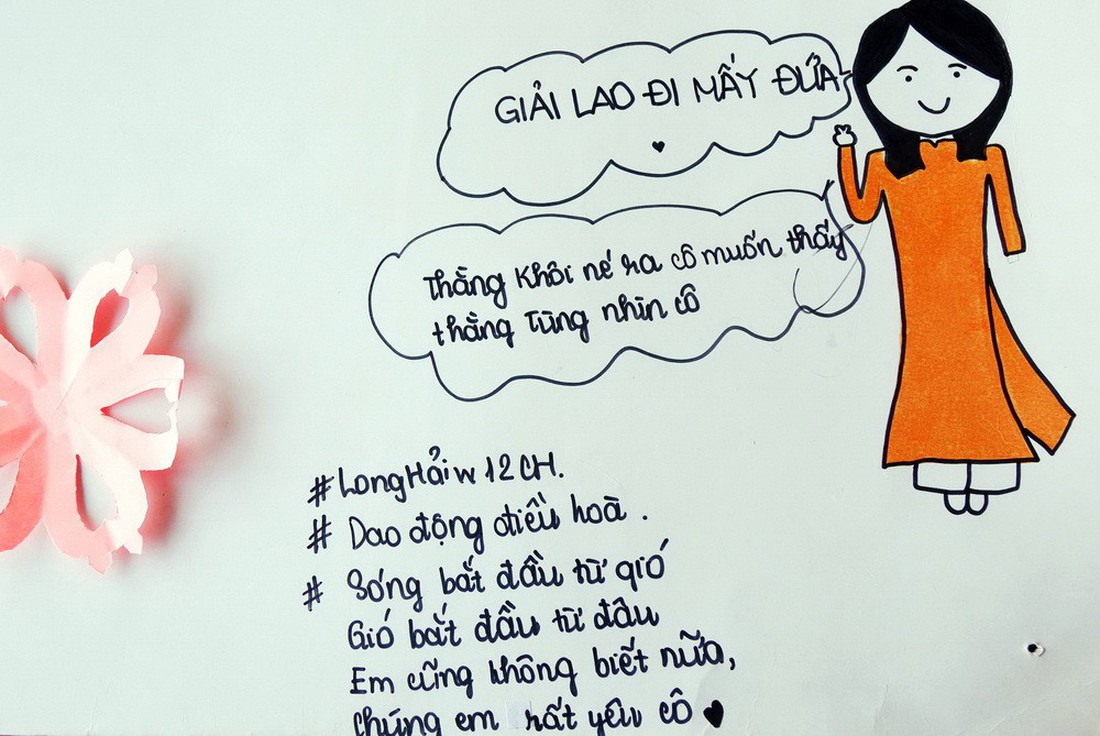 GIẢI LAO ĐI MẤY ĐỨA
Thằng Khôi né ra cô muốn thấy
thằng Tùng nhìn cô
#LongHải w 12CH.
# Dao động điều hoà.
# Sóng bắt đầu từ gió
Gió bắt đầu từ đâu
Em cũng không biết nữa,
Chúng em rất yêu cô